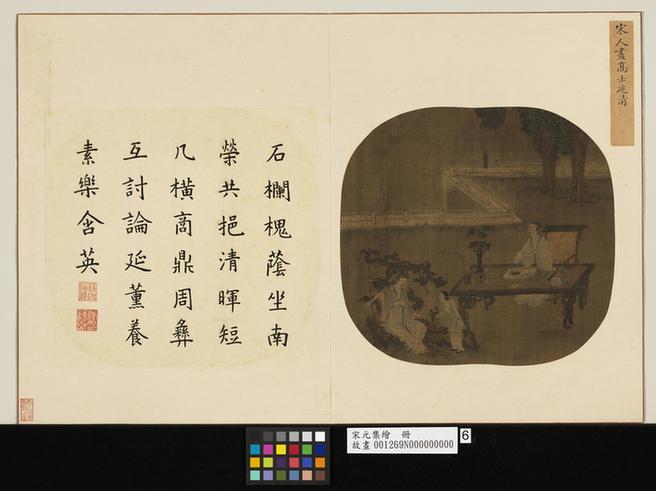 宋人畫高士延清
石欄槐蔭坐南
榮共挹清暉短
几橫高鼎周彝
互討論延薰養
素樂含英
宋元集繪 冊
故畫 001269N000000000
6